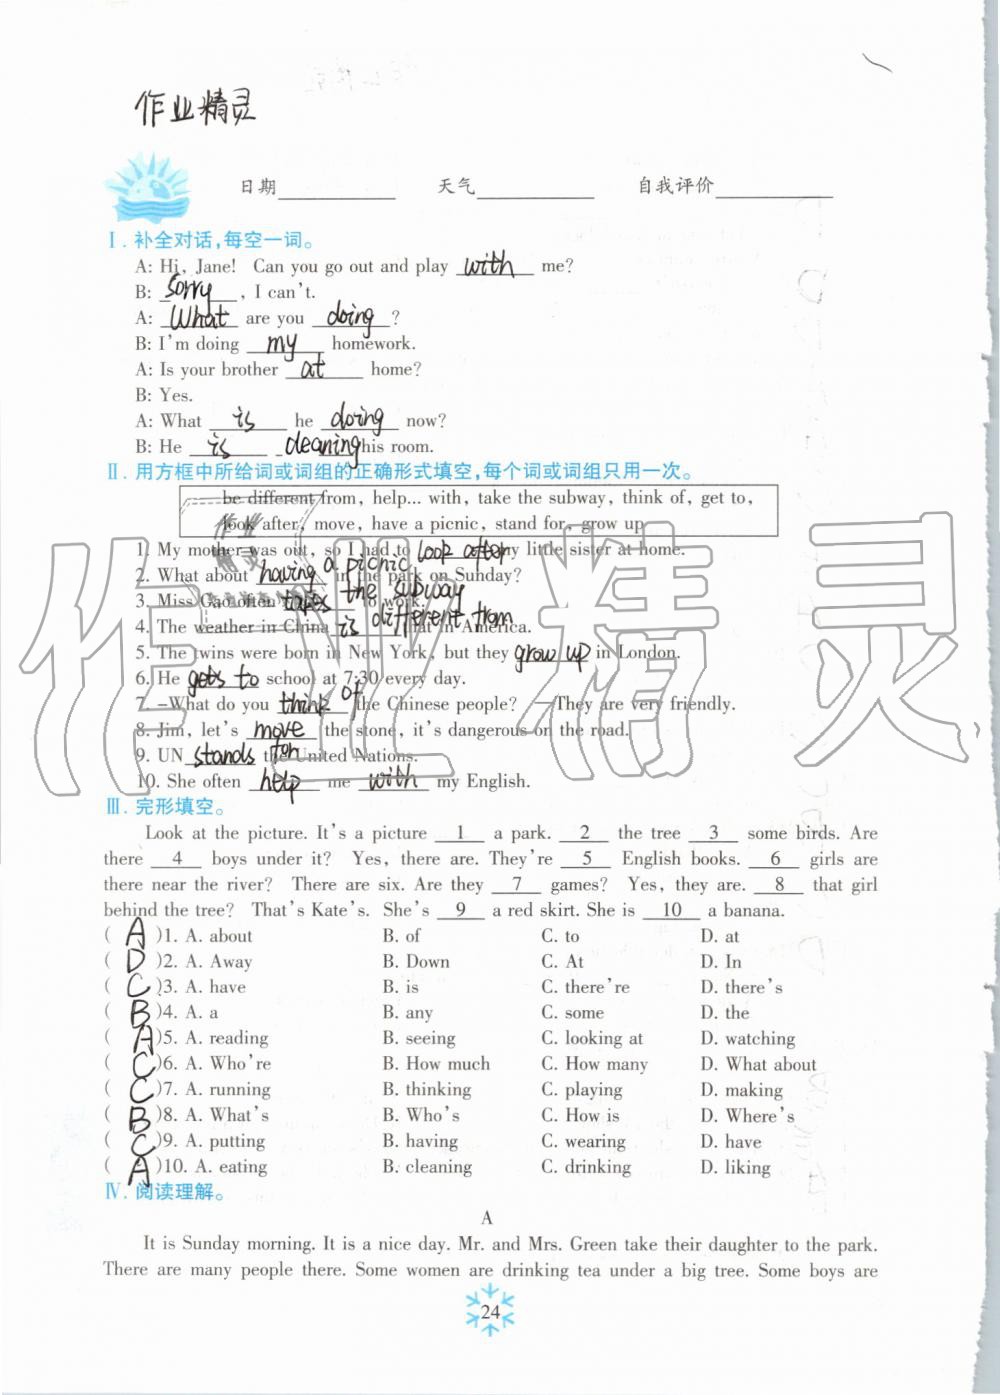 作业精灵
日期 天气 自我评价
Ⅰ. 补全对话,每空一词。
A: Hi, Jane! Can you go out and play with me?
B: Sorry, I can't.
A: What are you doing?
B: I'm doing my homework.
A: Is your brother at home?
B: Yes.
A: What is he doing now?
B: He is cleaning his room.
Ⅱ. 用方框中所给词或词组的正确形式填空,每个词或词组只用一次。
be different from, help... with, take the subway, think of, get to,
look after, move, have a picnic, stand for, grow up
1. My mother was out, so I had to look after my little sister at home.
2. What about having a picnic in the park on Sunday?
3. Miss Gao often takes the subway to work.
4. The weather in China is different from that in America.
5. The twins were born in New York, but they grow up in London.
6. He gets to school at 7:30 every day.
7. –What do you think of the Chinese people? –They are very friendly.
8. Jim, let's move the stone, it's dangerous on the road.
9. UN stands for the United Nations.
10. She often help me with my English.
Ⅲ. 完形填空。
Look at the picture. It's a picture 1 a park. 2 the tree 3 some birds. Are
there 4 boys under it? Yes, there are. They're 5 English books. 6 girls are
there near the river? There are six. Are they 7 games? Yes, they are. 8 that girl
behind the tree? That's Kate's. She's 9 a red skirt. She is 10 a banana.
( A )1. A. about B. of C. to D. at
( D )2. A. Away B. Down C. At D. In
( C )3. A. have B. is C. there're D. there's
( B )4. A. a B. any C. some D. the
( A )5. A. reading B. seeing C. looking at D. watching
( C )6. A. Who're B. How much C. How many D. What about
( C )7. A. running B. thinking C. playing D. making
( B )8. A. What's B. Who's C. How is D. Where's
( C )9. A. putting B. having C. wearing D. have
( A )10. A. eating B. cleaning C. drinking D. liking
Ⅳ. 阅读理解。
A
It is Sunday morning. It is a nice day. Mr. and Mrs. Green take their daughter to the park.
There are many people there. Some women are drinking tea under a big tree. Some boys are
24
作业精灵